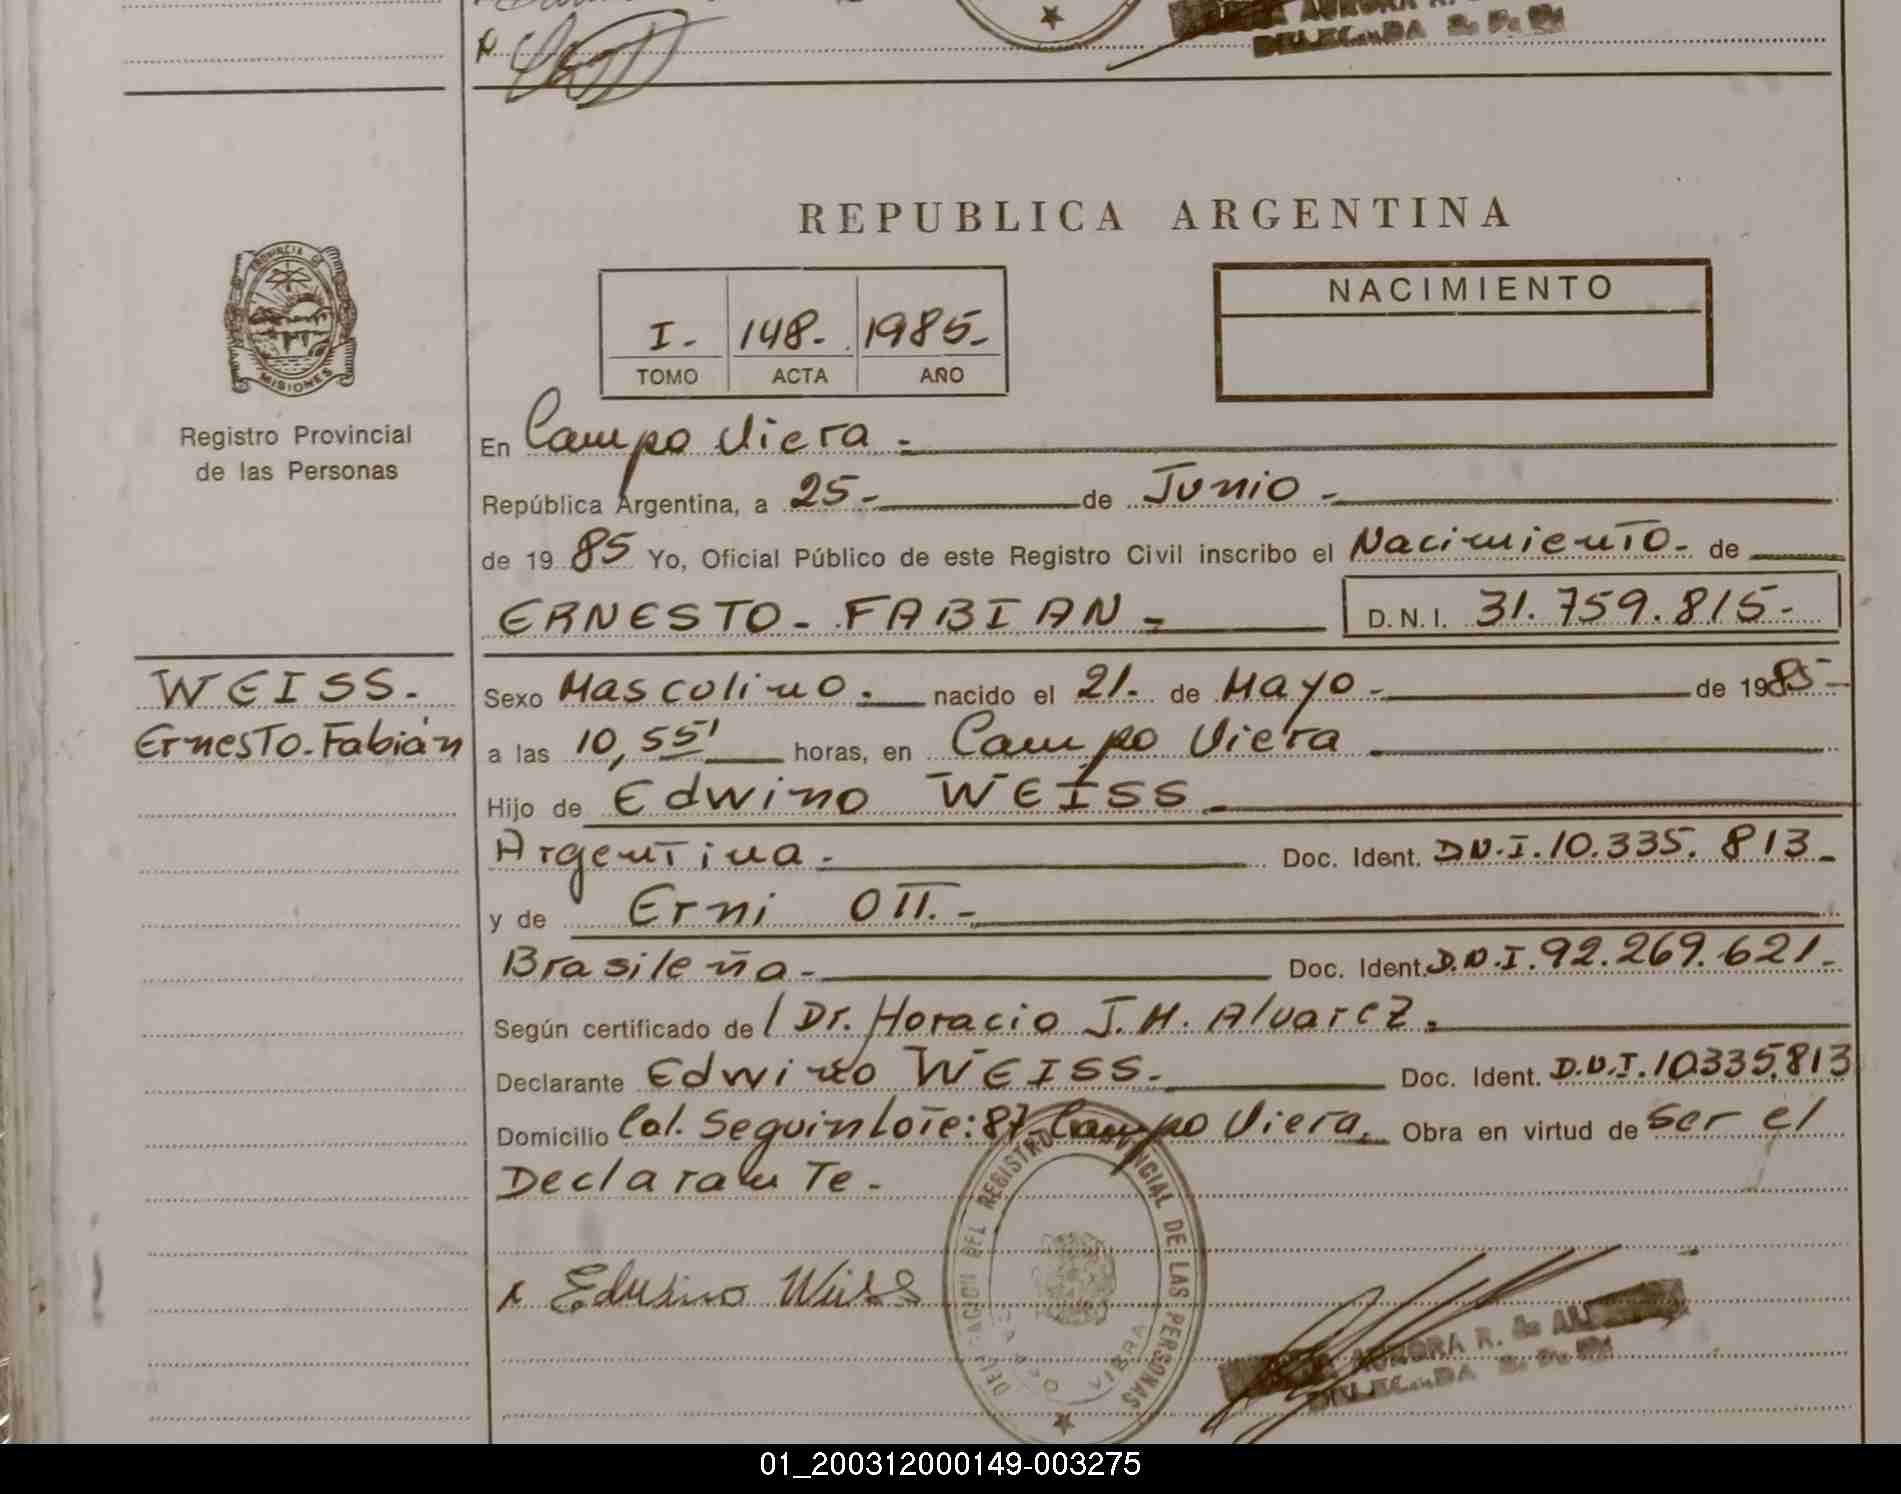 REPUBLICA ARGENTINA
PROVINCIA DE
MISIONES
Registro Provincial
de las Personas
I- 148- 1985-
TOMO ACTA AÑO
NACIMIENTO
En Campo Viera -
República Argentina, a 25- de Junio -
de 19 85 Yo, Oficial Público de este Registro Civil inscribo el Nacimiento- de
ERNESTO- FABIAN - D.N.I. 31.759.815-
WEISS.
Ernesto-Fabián
Sexo Mascolino. nacido el 21- de Mayo - de 1985-
a las 10,55' horas, en Campo Viera
Hijo de Edwino WEISS.
Argentina. Doc. Ident. D.N.I.10.335.813-
y de Erni OTT.-
Brasileña- Doc. Ident. D.N.I.92.269.621-
Según certificado de / Dr. Horacio J.M. Alvarez.
Declarante Edwino WEISS. Doc. Ident. D.N.I.10.335.813
Domicilio Col. Seguin Lote: 87 Campo Viera. Obra en virtud de ser el
Declarante.
DELEGACION DEL REGISTRO PROVINCIAL DE LAS PERSONAS
VIERA
Edwino Weiss
AURORA R. de
01_200312000149-003275